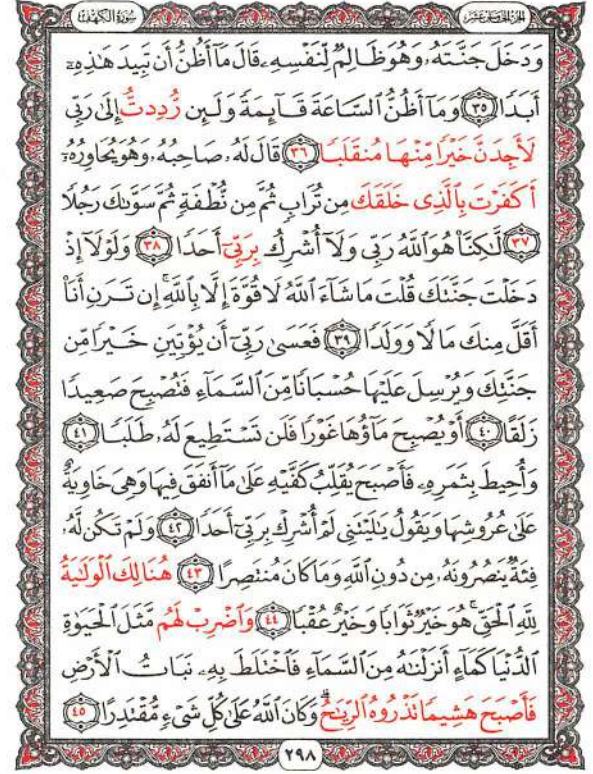 الجزء الخامس عشر
سورة الكهف
وَدَخَلَ جَنَّتَهُۥ وَهُوَ ظَالِمٌ لِّنَفْسِهِۦ قَالَ مَآ أَظُنُّ أَن تَبِيدَ هَٰذِهِۦٓ
أَبَدًا ٣٥ وَمَآ أَظُنُّ ٱلسَّاعَةَ قَآئِمَةً وَلَئِن رُّدِدتُّ إِلَىٰ رَبِّى
لَأَجِدَنَّ خَيْرًا مِّنْهَا مُنقَلَبًا ٣٦ قَالَ لَهُۥ صَاحِبُهُۥ وَهُوَ يُحَاوِرُهُۥٓ
أَكَفَرْتَ بِٱلَّذِى خَلَقَكَ مِن تُرَابٍ ثُمَّ مِن نُّطْفَةٍ ثُمَّ سَوَّىٰكَ رَجُلًا
٣٧ لَّٰكِنَّا۠ هُوَ ٱللَّهُ رَبِّى وَلَآ أُشْرِكُ بِرَبِّىٓ أَحَدًا ٣٨ وَلَوْلَآ إِذْ
دَخَلْتَ جَنَّتَكَ قُلْتَ مَا شَآءَ ٱللَّهُ لَا قُوَّةَ إِلَّا بِٱللَّهِ إِن تَرَنِ أَنَا۠
أَقَلَّ مِنكَ مَالًا وَوَلَدًا ٣٩ فَعَسَىٰ رَبِّىٓ أَن يُؤْتِيَنِ خَيْرًا مِّن
جَنَّتِكَ وَيُرْسِلَ عَلَيْهَا حُسْبَانًا مِّنَ ٱلسَّمَآءِ فَتُصْبِحَ صَعِيدًا
زَلَقًا ٤٠ أَوْ يُصْبِحَ مَآؤُهَا غَوْرًا فَلَن تَسْتَطِيعَ لَهُۥ طَلَبًا ٤١
وَأُحِيطَ بِثَمَرِهِۦ فَأَصْبَحَ يُقَلِّبُ كَفَّيْهِ عَلَىٰ مَآ أَنفَقَ فِيهَا وَهِىَ خَاوِيَةٌ
عَلَىٰ عُرُوشِهَا وَيَقُولُ يَٰلَيْتَنِى لَمْ أُشْرِكْ بِرَبِّىٓ أَحَدًا ٤٢ وَلَمْ تَكُن لَّهُۥ
فِئَةٌ يَنصُرُونَهُۥ مِن دُونِ ٱللَّهِ وَمَا كَانَ مُنتَصِرًا ٤٣ هُنَالِكَ ٱلْوَلَٰيَةُ
لِلَّهِ ٱلْحَقِّ هُوَ خَيْرٌ ثَوَابًا وَخَيْرٌ عُقْبًا ٤٤ وَٱضْرِبْ لَهُم مَّثَلَ ٱلْحَيَوٰةِ
ٱلدُّنْيَا كَمَآءٍ أَنزَلْنَٰهُ مِنَ ٱلسَّمَآءِ فَٱخْتَلَطَ بِهِۦ نَبَاتُ ٱلْأَرْضِ
فَأَصْبَحَ هَشِيمًا تَذْرُوهُ ٱلرِّيَٰحُ وَكَانَ ٱللَّهُ عَلَىٰ كُلِّ شَىْءٍ مُّقْتَدِرًا ٤٥
٢٩٨